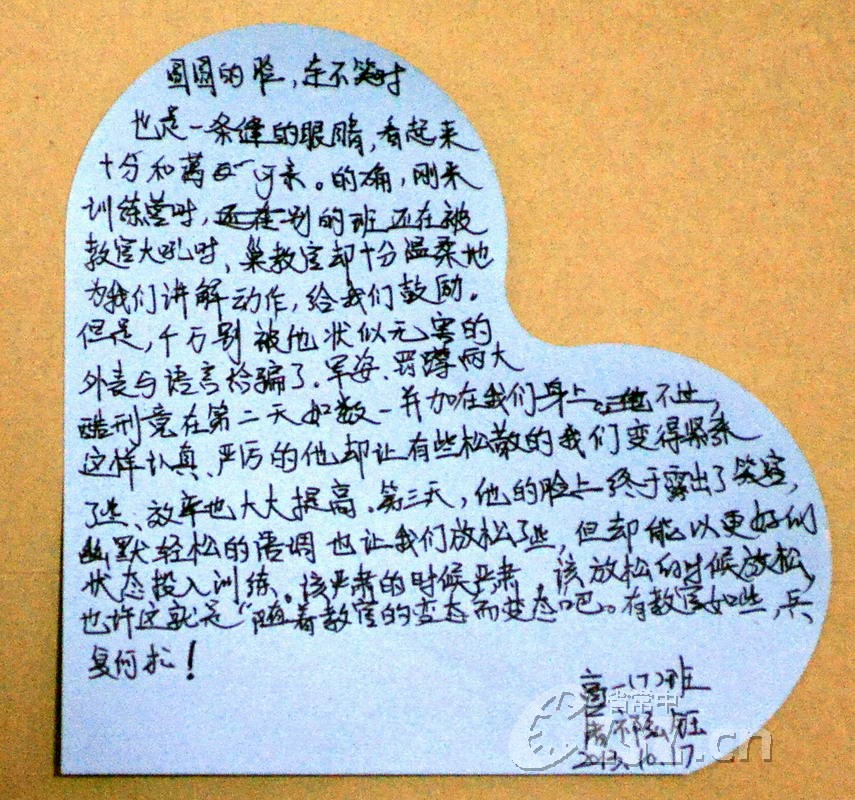 圆圆的脸，连不笑时
也是一条缝的眼睛，看起来
十分和蔼可亲。的确，刚来
训练营时，还在别的班还在被
教官大吼时，巢教官却十分温柔地
为我们讲解动作，给我们鼓励。
但是，千万别被他状似无害的
外表与语言给骗了。军姿、罚蹲两大
酷刑竟在第二天如数一并加在我们身上。不过，
这样认真、严厉的他却让有些松散的我们变得紧张
了些、效率也大大提高。第三天，他的脸上终于露出了笑容，
幽默轻松的语调也让我们放松了些，但却能以更好的
状态投入训练。该严肃的时候严肃，该放松的时候放松，
也许这就是“随着教官的变态而变态吧。有教官如此，兵
复何求！
高一(7)班
祁
2013.10.17
省常中
.cn